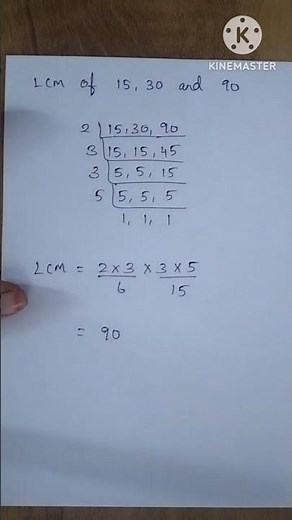 KINEMASTER
LCM of 15, 30 and 90
2 | 15, 30, 90
3 | 15, 15, 45
3 | 5, 5, 15
5 | 5, 5, 5
1, 1, 1
LCM = 2 × 3 × 3 × 5
6 15
= 90